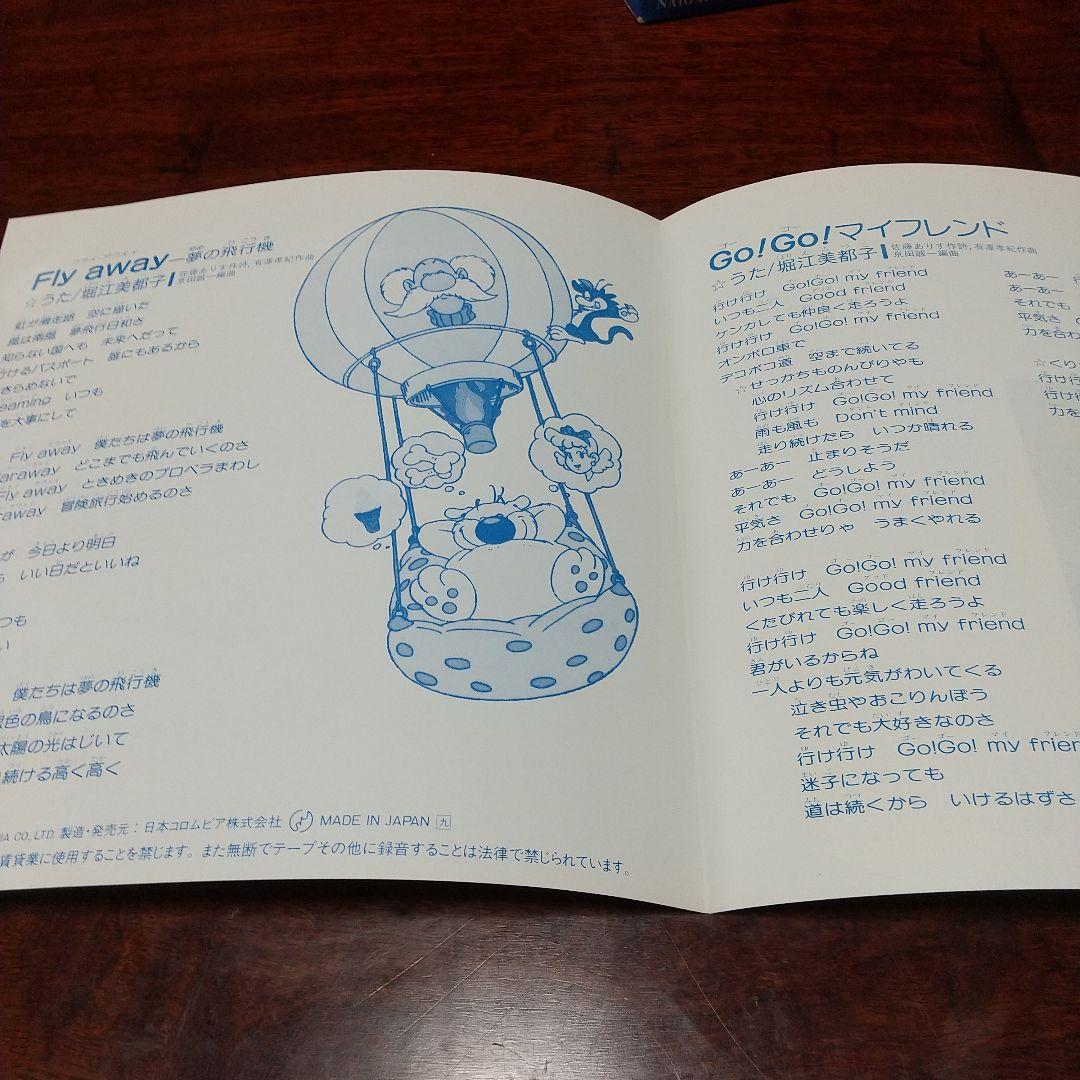 Fly away—夢の飛行機
☆うた/堀江美都子
佐藤ありす作詩, 有澤孝紀作曲
京田誠一編曲
虹が滑走路 空に描いた
風は南風 夢飛行日和さ
知らない国へも 未来へだって
行けるパスポート 誰にもあるから
きらめないで
eaming いつも
を大事にして
Fly away 僕たちは夢の飛行機
araway どこまでも飛んでいくのさ
Fly away ときめきのプロペラまわし
raway 冒険旅行始めるのさ
が 今日より明日
いい日だといいね
つも
い
僕たちは夢の飛行機
銀色の鳥になるのさ
太陽の光はじいて
続ける高く高く
IA CO., LTD. 製造・発売元:日本コロムビア株式会社 MADE IN JAPAN 九
賃貸業に使用することを禁じます。また無断でテープその他に録音することは法律で禁じられています。
Go!Go!マイフレンド
☆うた/堀江美都子
佐藤ありす作詩, 有澤孝紀作曲
京田誠一編曲
行け行け Go!Go! my friend
いつも二人 Good friend
ケンカしても仲良く走ろうよ
行け行け Go!Go! my friend
オンボロ車で
デコボコ道 空まで続いてる
☆せっかちものんびりやも
心のリズム合わせて
行け行け Go!Go! my friend
雨も風も Don't mind
走り続けたら いつか晴れる
あーあー 止まりそうだ
あーあー どうしよう
それでも Go!Go! my friend
平気さ Go!Go! my friend
力を合わせりゃ うまくやれる
行け行け Go!Go! my friend
いつも二人 Good friend
くたびれても楽しく走ろうよ
行け行け Go!Go! my friend
君がいるからね
一人よりも元気がわいてくる
泣き虫やおこりんぼう
それでも大好きなのさ
行け行け Go!Go! my frien
迷子になっても
道は続くから いけるはずさ
あーあー
あーあー
それでも
平気さ
力を合わ
☆くり
行け行
行け行
力を